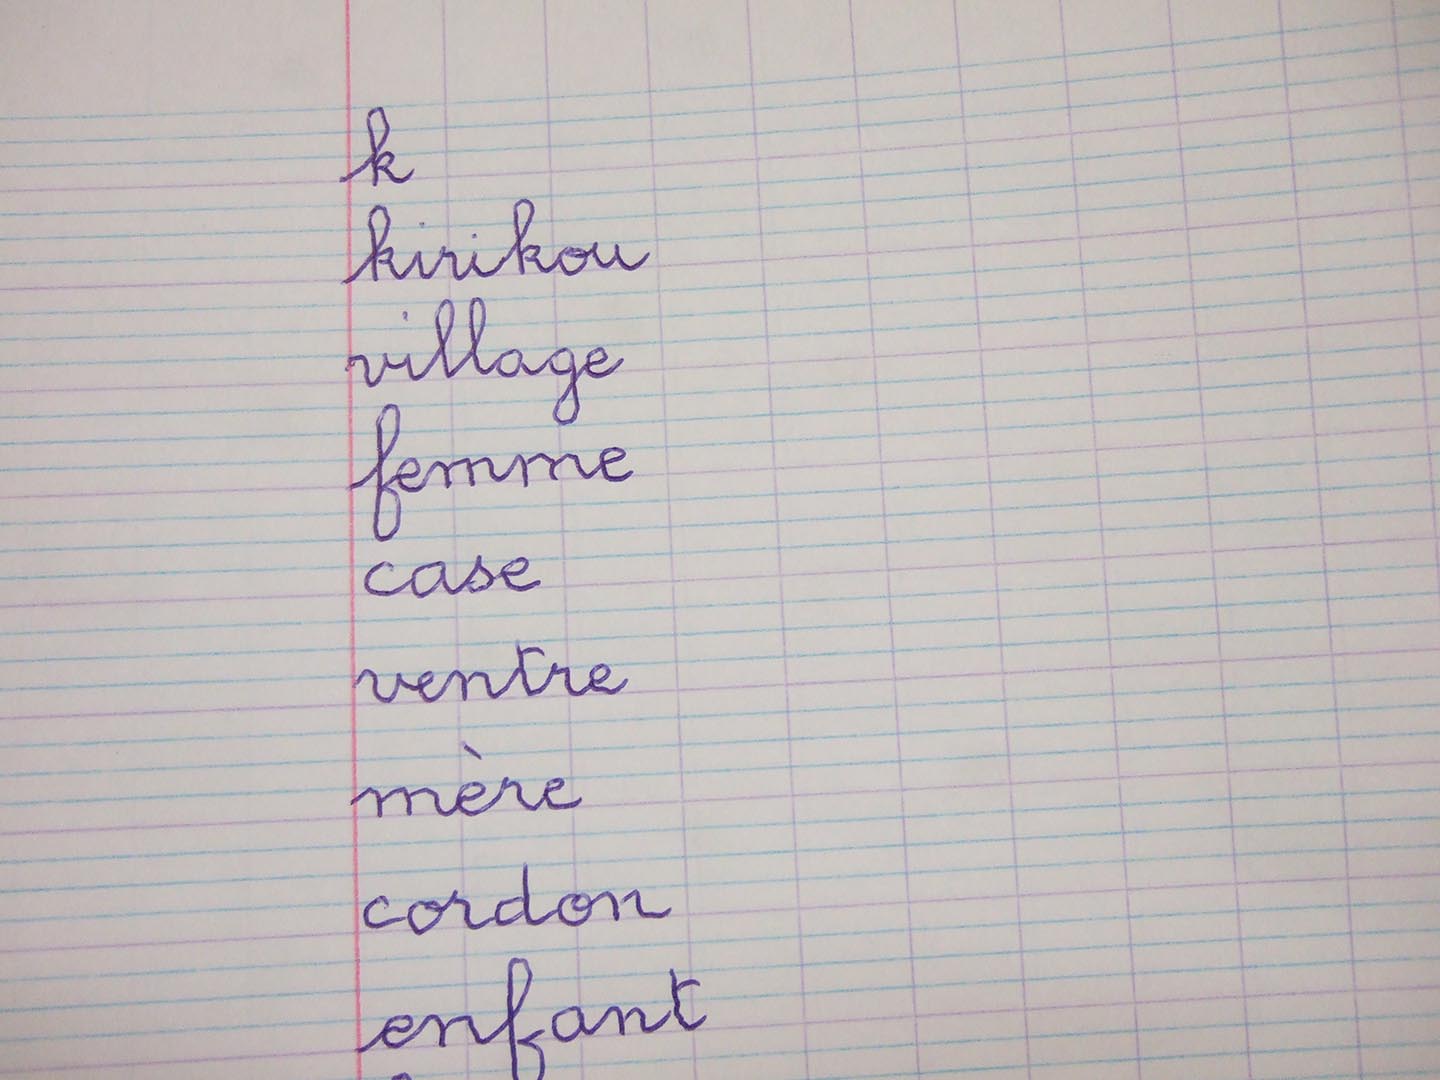 k
kirikou
village
femme
case
ventre
mère
cordon
enfant